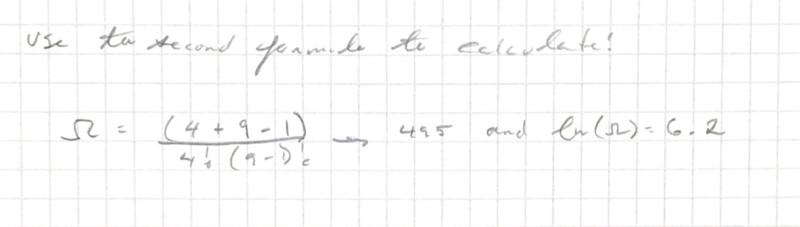 Use the second formula to calculate!
Ω = (4 + 9 - 1) / 4! (9-1)! → 495 and ln(Ω) = 6.2